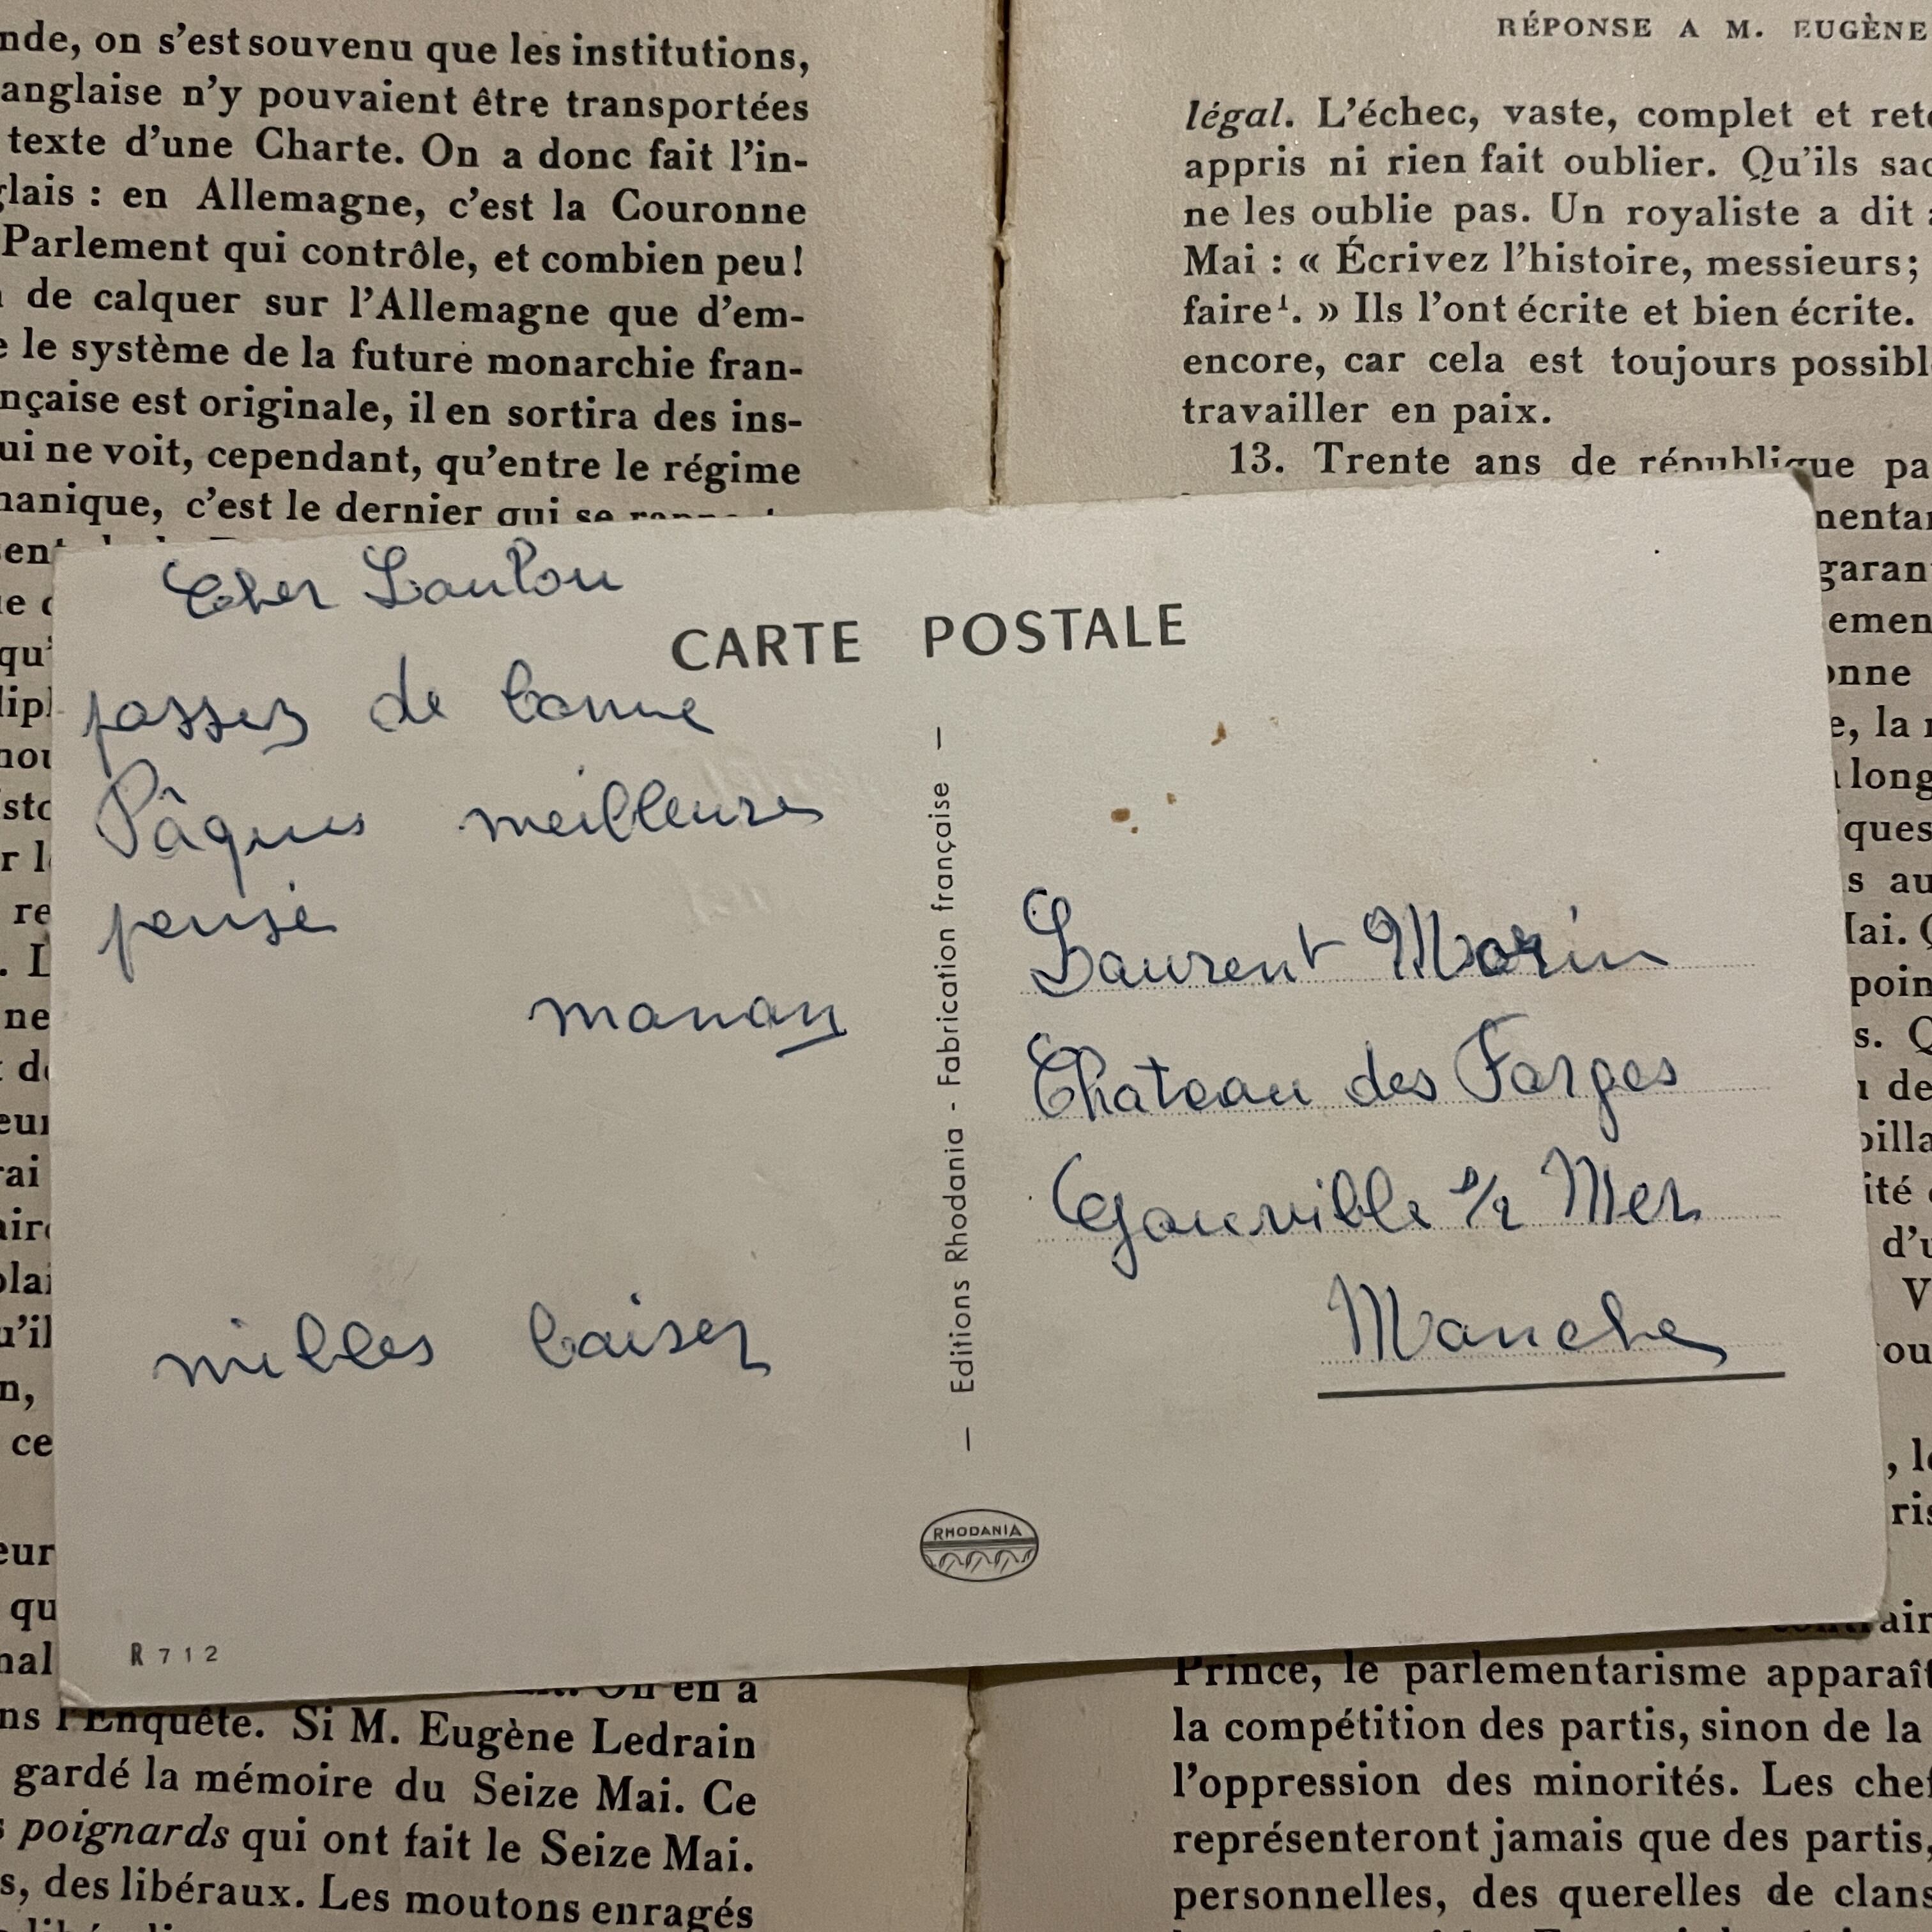 nde, on s'est souvenu que les institutions,
anglaise n'y pouvaient être transportées
texte d'une Charte. On a donc fait l'in-
glais : en Allemagne, c'est la Couronne
Parlement qui contrôle, et combien peu!
de calquer sur l'Allemagne que d'em-
e le système de la future monarchie fran-
nçaise est originale, il en sortira des ins-
ui ne voit, cependant, qu'entre le régime
manique, c'est le dernier qui se
RÉPONSE A M. EUGÈNE
légal. L'échec, vaste, complet et
appris ni rien fait oublier. Qu'ils
ne les oublie pas. Un royaliste a dit
Mai : « Écrivez l'histoire, messieurs;
faire¹. » Ils l'ont écrite et bien écrite.
encore, car cela est toujours possible
travailler en paix.
13. Trente ans de république
Cher Loulou
passez de bonne
Pâques meilleures
pensé
maman
milles baiser
R 712
CARTE POSTALE
— Editions Rhodania - Fabrication française —
RHODANIA
Laurent Morin
Chateau des Forges
Gouville s/ Mer
Manche
On en a
ns l'Enquête. Si M. Eugène Ledrain
gardé la mémoire du Seize Mai. Ce
s poignards qui ont fait le Seize Mai.
s, des libéraux. Les moutons enragés
Prince, le parlementarisme apparaît
la compétition des partis, sinon de la
l'oppression des minorités. Les chef
représenteront jamais que des partis,
personnelles, des querelles de clans